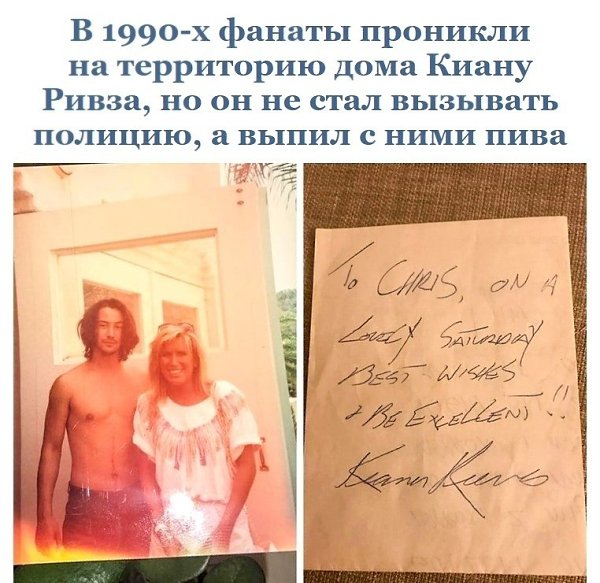 В 1990-х фанаты проникли
на территорию дома Киану
Ривза, но он не стал вызывать
полицию, а выпил с ними пива
To CHRIS, ON A
LOVELY SATURDAY
BEST WISHES
& BE EXCELLENT!!
Keanu Reeves